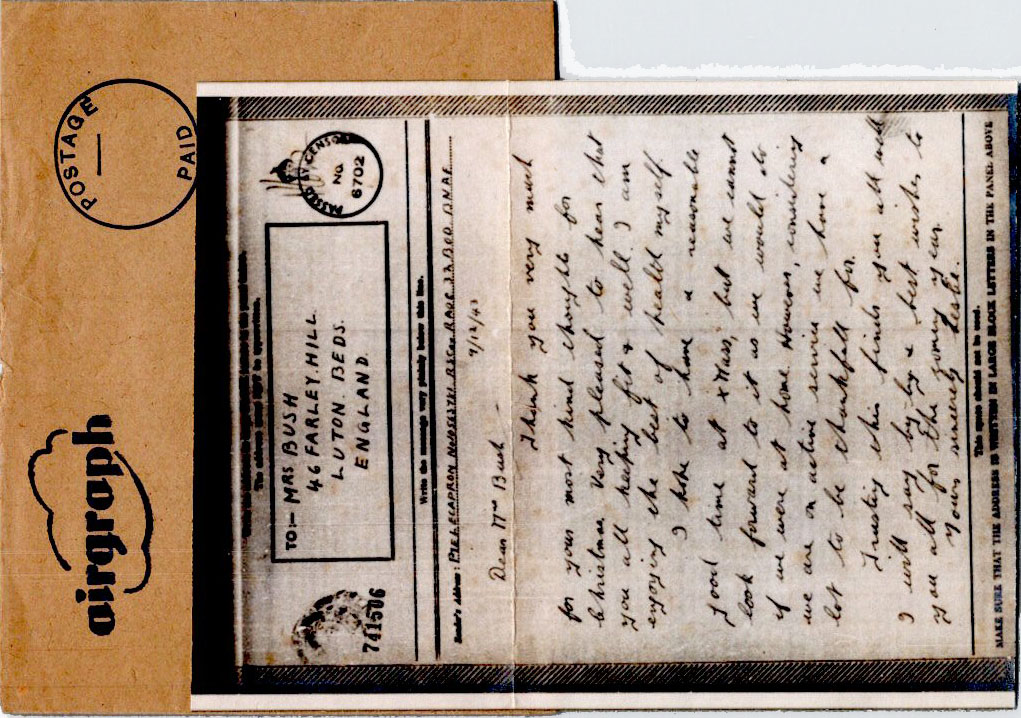 airgraph
POSTAGE
PAID
The address must
TO:— MRS BUSH
46 FARLEY HILL.
LUTON. BEDS.
ENGLAND
PASSED BY CENSOR
NO
6702
741506
Write the message very plainly below this line.
Sender's Address:
9/12/43
Dear Mrs Bush
Thank you very much
for your most kind thoughts for
Christmas. Very pleased to hear that
you all keeping fit & well. I am
enjoying the best of health myself.
I hope to have a reasonable
good time at xmass, but we cannot
look forward to it as we would do
if we were at home. However, considering
we are on active service we have a
lot to be thankfull for.
Trusting this finds you all well
I will say by by & best wishes to
you all for the coming year.
Yours sincerely Leslie.
This space should not be used.
MAKE SURE THAT THE ADDRESS IS WRITTEN IN LARGE BLOCK LETTERS IN THE PANEL ABOVE